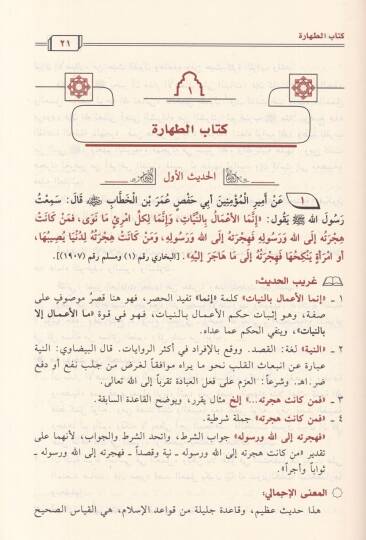 كتاب الطهارة
٢١
١
كتاب الطهارة
الحديث الأول
١ عَنْ أَمِيرِ الْمُؤْمِنِينَ أَبِي حَفْصٍ عُمَرَ بْنِ الْخَطَّابِ ﷺ قَالَ: سَمِعْتُ
رَسُولَ الله ﷺ يَقُول: «إِنَّمَا الأَعْمَالُ بِالنِّيَّاتِ، وَإِنَّمَا لِكلِّ امْرِئٍ مَا نَوَى، فَمَنْ كَانَتْ
هِجْرَتُهُ إلَى الله وَرَسُولِهِ فَهِجْرَتُهُ إلَى الله وَرَسُولِهِ، وَمَنْ كَانَتْ هِجْرَتُهُ لِدُنْيَا يُصِيبُهَا،
أو امْرَأَةٍ يَنْكِحُهَا فَهِجْرَتُهُ إلَى مَا هَاجَرَ إلَيْهِ». [البخاري رقم (١) ومسلم رقم (١٩٠٧)].
غريب الحديث:
١ ـ «إنما الأعمال بالنيات» كلمة «إنما» تفيد الحصر، فهو هنا قصرُ موصوفٍ على
صفة، وهو إثبات حكم الأعمال بالنيات، فهو في قوة «ما الأعمال إلا
بالنيات»، وينفي الحكم عما عداه.
٢ ـ «النية» لغة: القصد. ووقع بالإفراد في أكثر الروايات. قال البيضاوي: النية
عبارة عن انبعاث القلب نحو ما يراه موافقاً لغرض من جلب نفع أو دفع
ضر.اهـ. وشرعاً: العزم على فعل العبادة تقرباً إلى الله تعالى.
٣ ـ «فمن كانت هجرته..» إلخ مثال يقرر، ويوضح القاعدة السابقة.
٤ ـ «فمن كانت هجرته» جملة شرطية.
«فهجرته إلى الله ورسوله» جواب الشرط، واتحد الشرط والجواب، لأنهما على
تقدير «من كانت هجرته إلى الله ورسوله ـ نية وقصداً ـ فهجرته إلى الله ورسوله ـ
ثواباً وأجراً».
المعنى الإجمالي:
هذا حديث عظيم، وقاعدة جليلة من قواعد الإسلام، هي القياس الصحيح